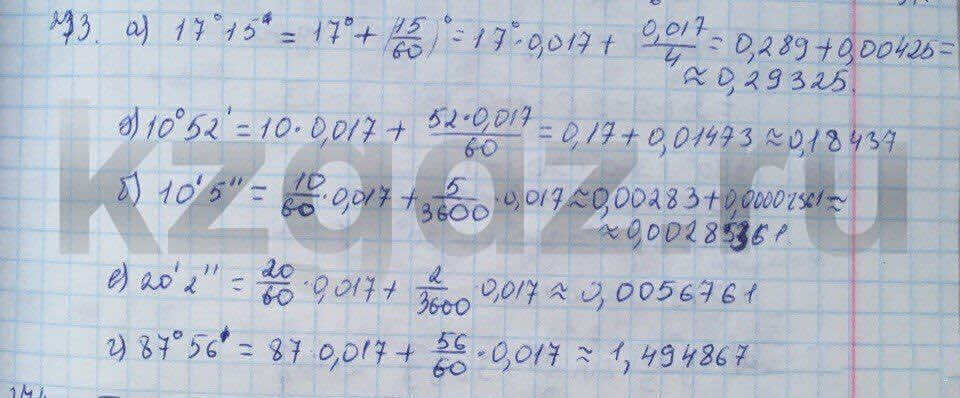 273. а) 17°15' = 17° + (15/60)° = 17°·0,017 + 0,017/4 = 0,289 + 0,00425 =
≈ 0,29325.
10°52' = 10·0,017 + 52·0,017/60 = 0,17 + 0,01473 ≈ 0,18437
б) 10'5'' = 10/60·0,017 + 5/3600·0,017 ≈ 0,00283 + 0,00002361 ≈
≈ 0,00285361
е) 20'2'' = 20/60·0,017 + 2/3600·0,017 ≈ 0,0056761
г) 87°56' = 87·0,017 + 56/60·0,017 ≈ 1,494867
kzgdz.ru